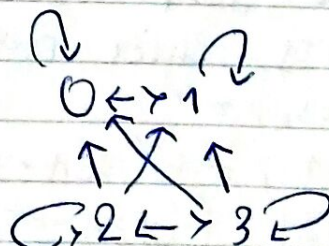 0 ↔ 1
2 ↔ 3